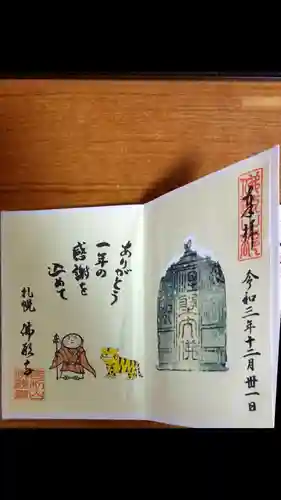 奉拝
令和三年十二月卅一日
ありがとう
一年の
感謝を
込めて
札幌 佛願寺